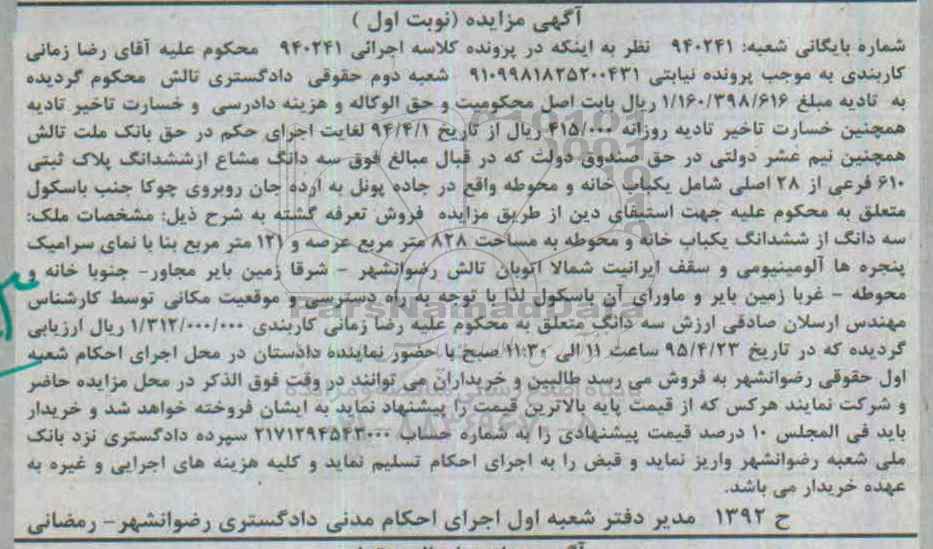 آگهی مزایده (نوبت اول )
شماره بایگانی شعبه: ۹۴۰۲۴۱ نظر به اینکه در پرونده کلاسه اجرائی ۹۴۰۲۴۱ محکوم علیه آقای رضا زمانی
کاربندی به موجب پرونده نیابتی ۹۱۰۹۹۸۱۸۲۵۲۰۰۴۳۱ شعبه دوم حقوقی دادگستری تالش محکوم گردیده
به تادیه مبلغ ۱/۱۶۰/۳۹۸/۶۱۶ ریال بابت اصل محکومیت و حق الوکاله و هزینه دادرسی و خسارت تاخیر تادیه
همچنین خسارت تاخیر تادیه روزانه ۴۱۵/۰۰۰ ریال از تاریخ ۹۴/۴/۱ لغایت اجرای حکم در حق بانک ملت تالش
همچنین نیم عشر دولتی در حق صندوق دولت که در قبال مبالغ فوق سه دانگ مشاع ازششدانگ پلاک ثبتی
۶۱۰ فرعی از ۲۸ اصلی شامل یکباب خانه و محوطه واقع در جاده پونل به ارده جان روبروی چوکا جنب باسکول
متعلق به محکوم علیه جهت استیفای دین از طریق مزایده فروش تعرفه گشته به شرح ذیل: مشخصات ملک:
سه دانگ از ششدانگ یکباب خانه و محوطه به مساحت ۸۲۸ متر مربع عرصه و ۱۲۱ متر مربع بنا با نمای سرامیک
پنجره ها آلومینیومی و سقف ایرانیت شمالا اتوبان تالش رضوانشهر - شرقا زمین بایر مجاور- جنوبا خانه و
محوطه - غربا زمین بایر و ماورای آن باسکول لذا با توجه به راه دسترسی و موقعیت مکانی توسط کارشناس
مهندس ارسلان صادقی ارزش سه دانگ متعلق به محکوم علیه رضا زمانی کاربندی ۱/۳۱۲/۰۰۰/۰۰۰ ریال ارزیابی
گردیده که در تاریخ ۹۵/۴/۲۳ ساعت ۱۱ الی ۱۱:۳۰ صبح با حضور نماینده دادستان در محل اجرای احکام شعبه
اول حقوقی رضوانشهر به فروش می رسد طالبین و خریداران می توانند در وقت فوق الذکر در محل مزایده حاضر
و شرکت نمایند هرکس که از قیمت پایه بالاترین قیمت را پیشنهاد نماید به ایشان فروخته خواهد شد و خریدار
باید فی المجلس ۱۰ درصد قیمت پیشنهادی را به شماره حساب ۲۱۷۱۲۹۴۵۴۳۰۰۰ سپرده دادگستری نزد بانک
ملی شعبه رضوانشهر واریز نماید و قبض را به اجرای احکام تسلیم نماید و کلیه هزینه های اجرایی و غیره به
عهده خریدار می باشد.
ح ۱۳۹۲ مدیر دفتر شعبه اول اجرای احکام مدنی دادگستری رضوانشهر- رمضانی
ParsNamadData